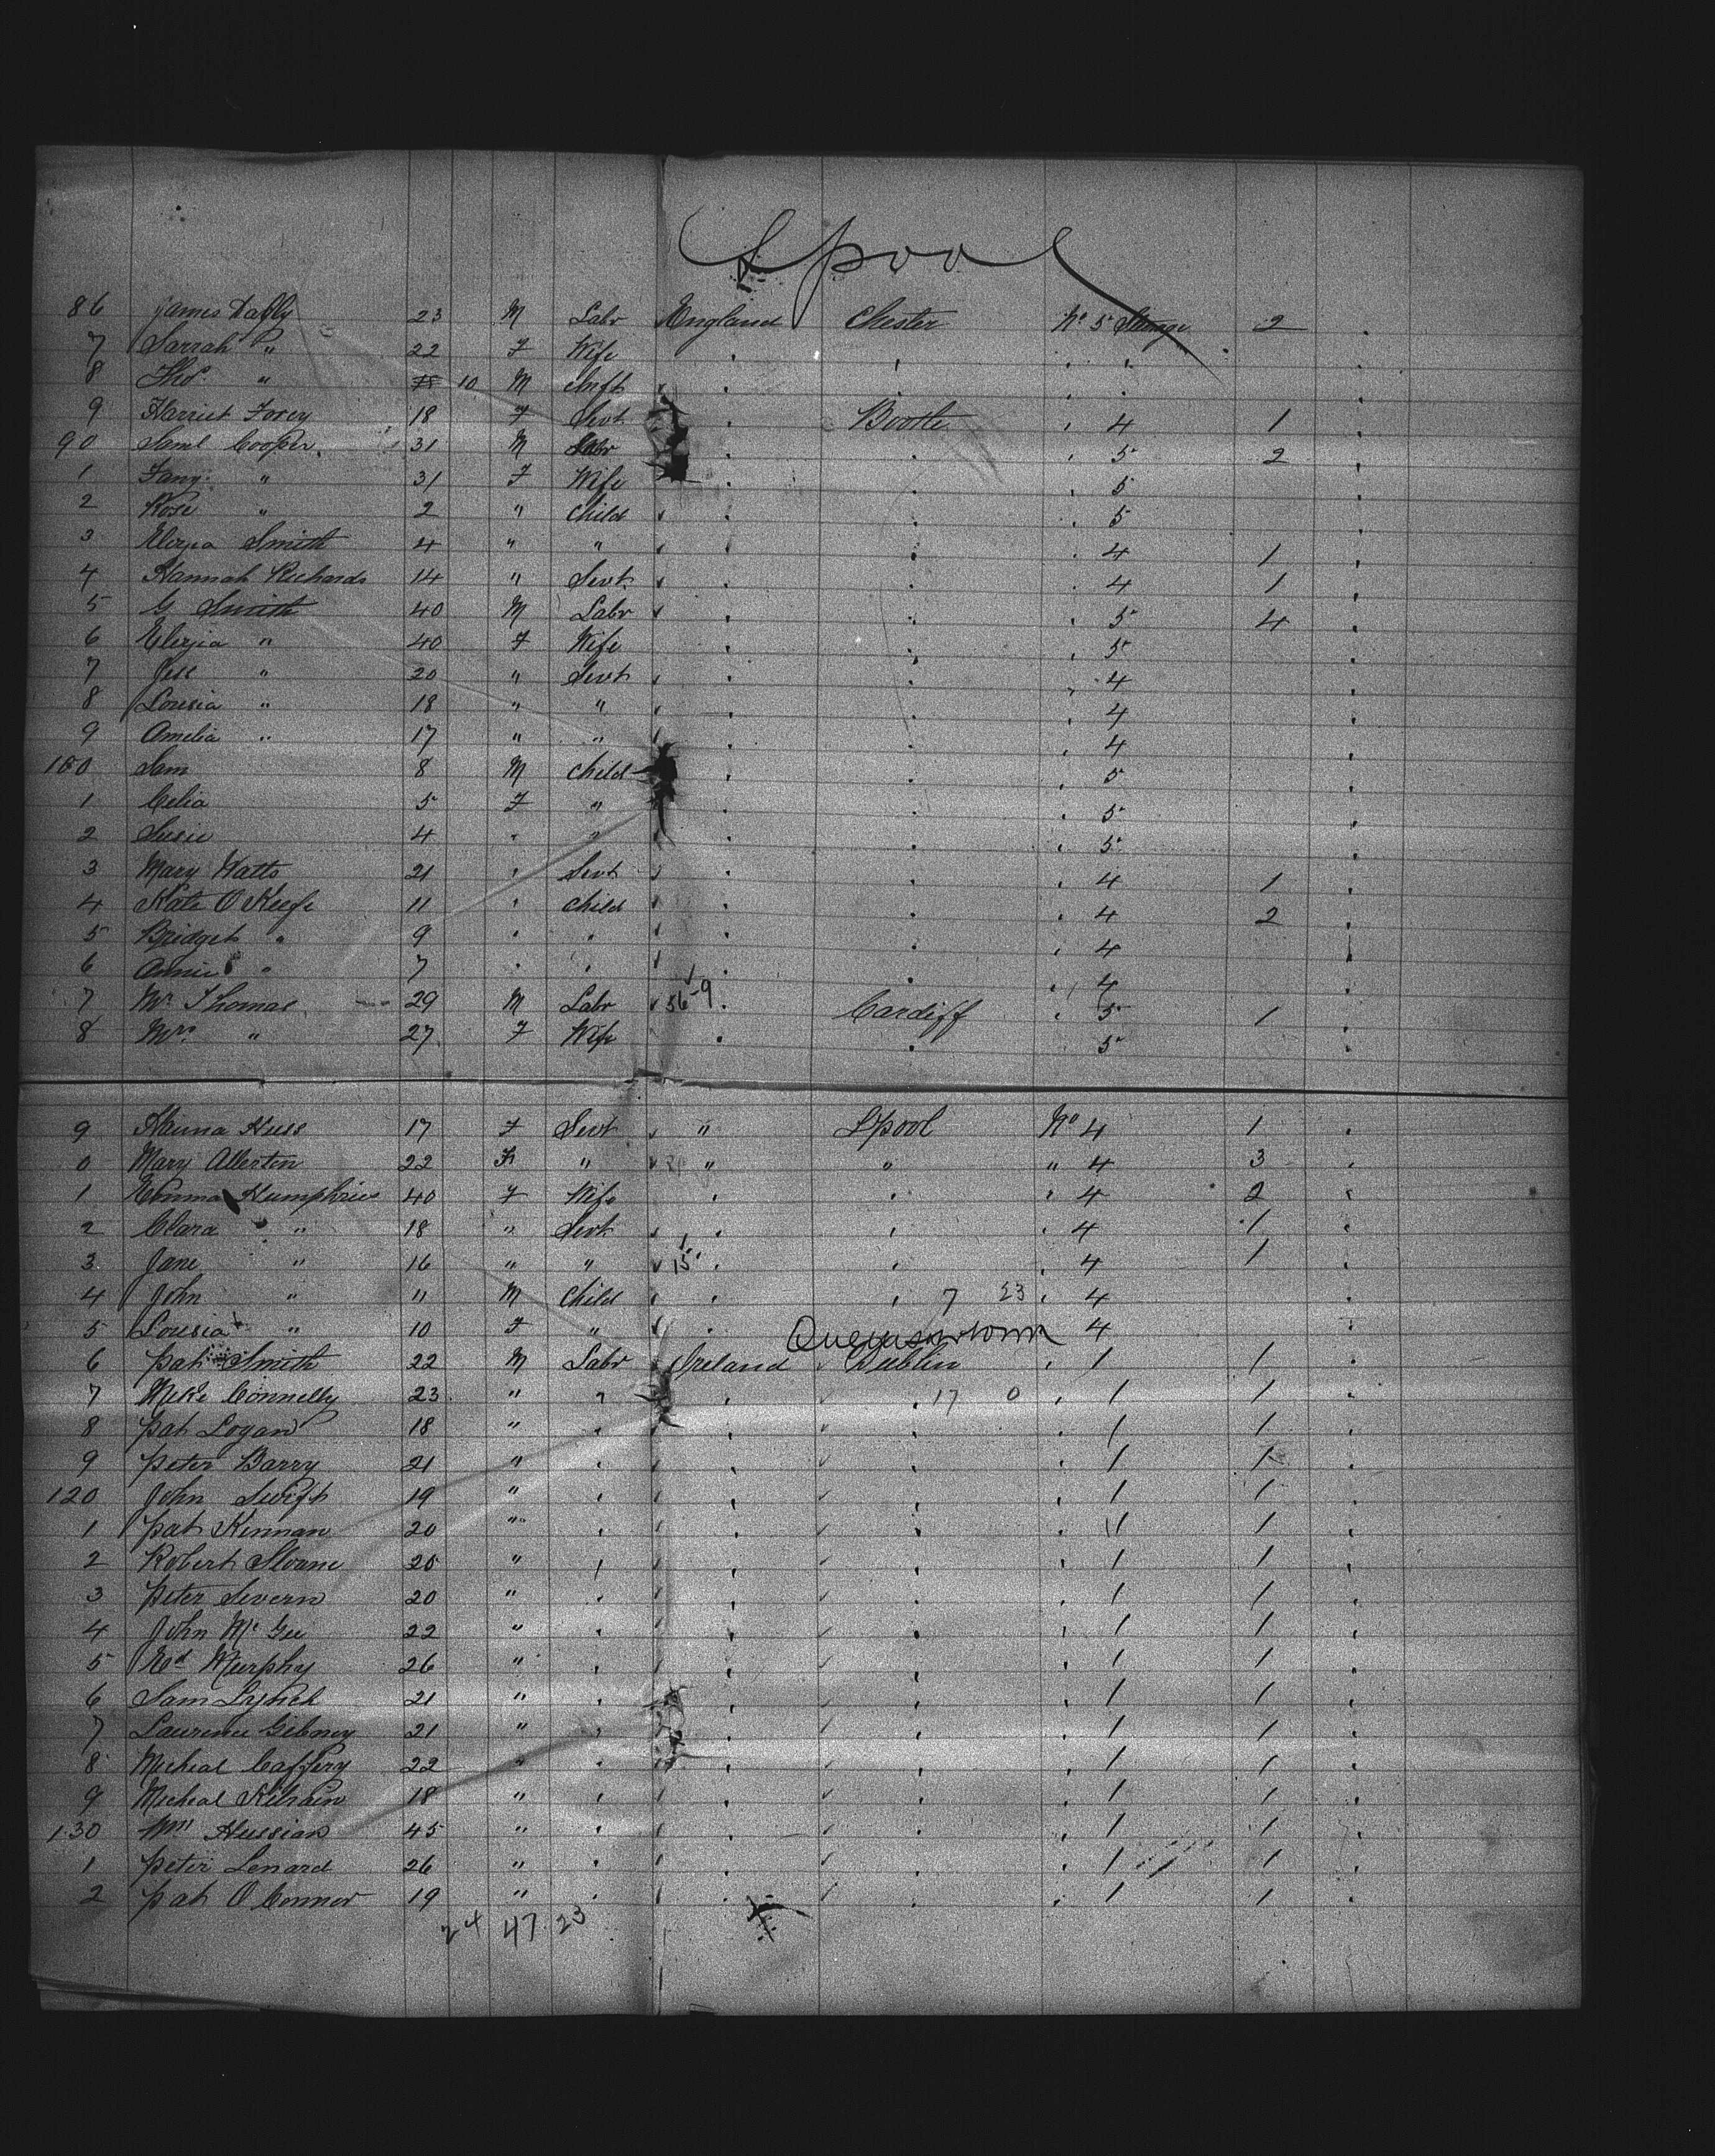 Lpool
86 James Daffy 23 M Labr England Chester No 5 Steerage 2
7 Sarrah " 22 F Wife
8 Thos " 10 M Inft
9 Harriet Forey 18 F Servt Bootle 4 1
90 Saml Cooper 31 M Labr 5 2
1 Fany " 31 F Wife 5
2 Rose " 2 " Child 5
3 Eliza Smith 4 " " 4 1
4 Hannah Richards 14 " Servt 4 1
5 G Smith 40 M Labr 5 4
6 Eliza " 40 F Wife 5
7 Jess " 20 " Servt 4
8 Lousia " 18 " " 4
9 Amelia " 17 " " 4
100 Sam 8 M Child 5
1 Celia 5 F " 5
2 Susie 4 " " 5
3 Mary Watts 21 " Servt 4 1
4 Kate O Keefe 11 " Child 4 2
5 Bridget " 9 " " 4
6 Annie " 7 " " 4
7 Mr Thomas 29 M Labr 56-9 Cardiff 5 1
8 Mrs " 27 F Wife 5
9 Hanna Huss 17 F Servt " Lpool No 4 1
0 Mary Allerton 22 F " " " " 4 3
1 Emma Humphries 40 F Wife 4 2
2 Clara " 18 " Servt 4 1
3 Jane " 16 " " 15 4 1
4 John " 11 M Child 7 23 4
5 Lousia " 10 F " 4
Queenstown
6 Pat Smith 22 M Labr Ireland Dublin 1 1
7 Mike Connelly 23 " " 17 0 1 1
8 Pat Logan 18 " 1 1
9 Peter Barry 21 " 1 1
120 John Swift 19 " 1 1
1 Pat Kinnan 20 " 1 1
2 Robert Sloane 25 " 1 1
3 Peter Severn 20 " 1 1
4 John Mc Gee 22 " 1 1
5 Ed Murphy 26 " 1 1
6 Sam Lynch 21 " 1 1
7 Laurence Gibney 21 " 1 1
8 Micheal Caffery 22 " 1 1
9 Micheal Kilrain 18 " 1 1
130 Wm Hussian 45 " 1 1
1 Peter Lenard 26 " 1 1
2 Pat O Connor 19 " 1 1
24 47 23